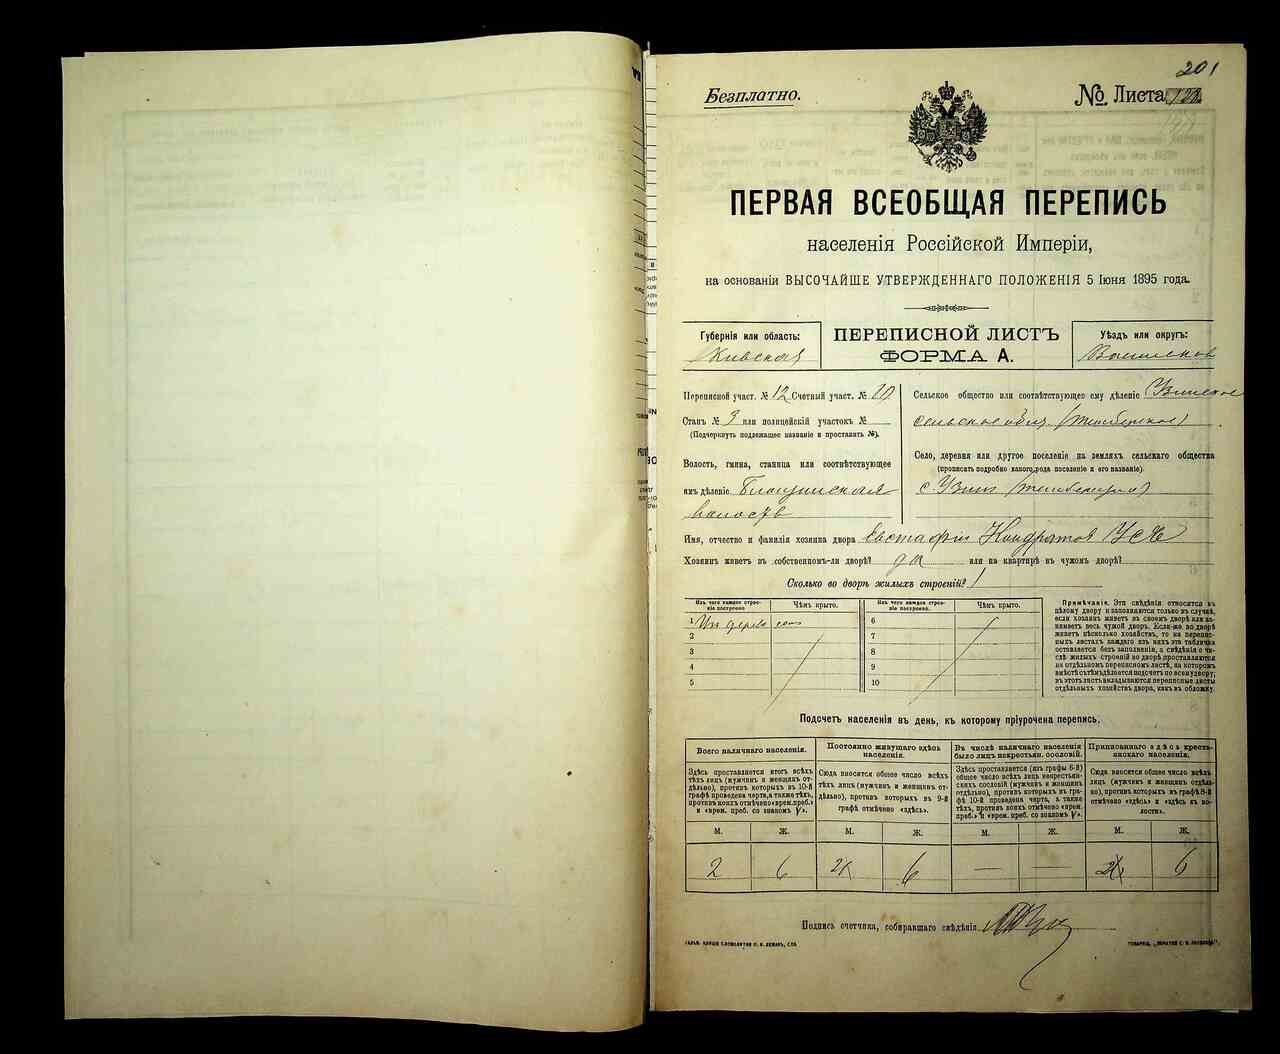 201
Безплатно.
№ Листа 122
ПЕРВАЯ ВСЕОБЩАЯ ПЕРЕПИСЬ
населенія Россійской Имперіи,
на основаніи ВЫСОЧАЙШЕ УТВЕРЖДЕННАГО ПОЛОЖЕНІЯ 5 Іюня 1895 года.
Губернія или область:
Кивская
ПЕРЕПИСНОЙ ЛИСТЪ
ФОРМА А.
Уѣздъ или округъ:
Васильков
Переписной участ. № 12 Счетный участ. №
Станъ № 3 или полицейскій участокъ №
(Подчеркнуть подлежащее названіе и проставить №).
Волость, гмина, станица или соотвѣтствующее
имъ дѣленіе
волость
Сельское общество или соотвѣтствующее ему дѣленіе Узинское
сельское общ.
Село, деревня или другое поселеніе на земляхъ сельскаго общества
(прописать подробно какого рода поселеніе и его названіе).
с. Узин
Имя, отчество и фамилія хозяина двора Евстафій Кондратов Усъ
Хозяинъ живетъ въ собственномъ-ли дворѣ? да или на квартирѣ въ чужомъ дворѣ?
Сколько во дворѣ жилыхъ строеній? 1
Изъ чего каждое строеніе построено.
Чѣмъ крыто.
Изъ чего каждое строеніе построено.
Чѣмъ крыто.
1 Из дерева солом
2
3
4
5
6
7
8
9
10
Примѣчаніе. Эти свѣдѣнія относятся къ
цѣлому двору и заполняются только въ случаѣ,
если хозяинъ живетъ въ своемъ дворѣ или за-
нимаетъ весь чужой дворъ. Если-же во дворѣ
живетъ нѣсколько хозяйствъ, то на перепис-
ныхъ листахъ каждаго изъ нихъ эта табличка
оставляется безъ заполненія, а свѣдѣнія о чи-
слѣ жилыхъ строеній во дворѣ проставляются
на отдѣльномъ переписномъ листѣ, на которомъ
вмѣстѣ съ тѣмъ дѣлается подсчетъ по всему двору;
въ этотъ листъ вкладываются переписные листы
отдѣльныхъ хозяйствъ двора, какъ въ обложку.
Подсчетъ населенія въ день, къ которому пріурочена перепись.
Всего наличнаго населенія.
Здѣсь проставляется итогъ всѣхъ
тѣхъ лицъ (мужчинъ и женщинъ от-
дѣльно), противъ которыхъ въ 10-й
графѣ проведена черта, а также тѣхъ,
противъ коихъ отмѣчено «врем. преб.»
и «врем. преб. со знакомъ V».
Постоянно живущаго здѣсь
населенія.
Сюда вносится общее число всѣхъ
тѣхъ лицъ (мужчинъ и женщинъ от-
дѣльно), противъ которыхъ въ 9-й
графѣ отмѣчено «здѣсь».
Въ числѣ наличнаго населенія
было лицъ некрестьян. сословій.
Здѣсь проставляется (изъ графы 6-й)
общее число всѣхъ лицъ некрестьян-
скихъ сословій (мужчинъ и женщинъ
отдѣльно), противъ которыхъ въ гра-
фѣ 10-й проведена черта, а также
тѣхъ, противъ коихъ отмѣчено «врем.
преб.» и «врем. преб. со знакомъ V».
Приписаннаго здѣсь кресть-
янскаго населенія.
Сюда вносится общее число всѣхъ
лицъ (мужчинъ и женщинъ отдѣль-
но), противъ которыхъ въ графѣ 8-й
отмѣчено «здѣсь» и «здѣсь къ во-
лости».
М. Ж. М. Ж. М. Ж. М. Ж.
2 6 2 6 — — 2 6
Подпись счетчика, собиравшаго свѣдѣнія